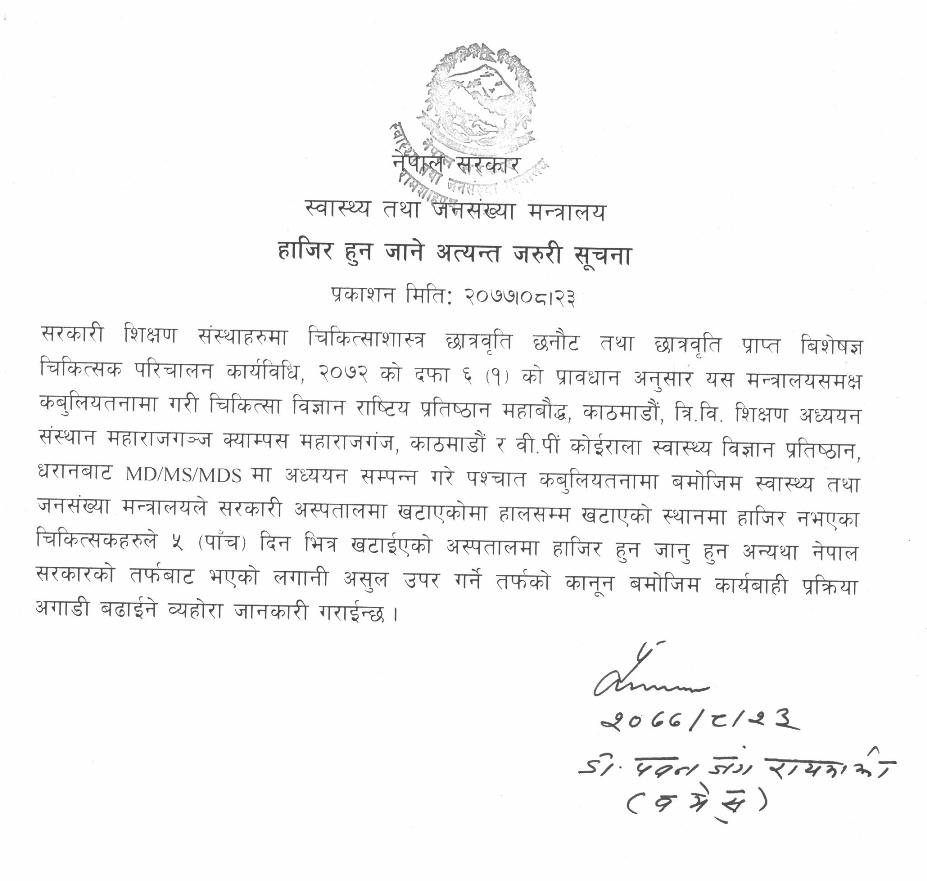 नेपाल सरकार
स्वास्थ्य तथा जनसंख्या मन्त्रालय
रामशाहपथ
नेपाल सरकार
स्वास्थ्य तथा जनसंख्या मन्त्रालय
हाजिर हुन जाने अत्यन्त जरुरी सूचना
प्रकाशन मिति: २०७७।०८।२३
सरकारी शिक्षण संस्थाहरुमा चिकित्साशास्त्र छात्रवृति छनौट तथा छात्रवृति प्राप्त बिशेषज्ञ
चिकित्सक परिचालन कार्यविधि, २०७२ को दफा ६ (१) को प्रावधान अनुसार यस मन्त्रालयसमक्ष
कबुलियतनामा गरी चिकित्सा विज्ञान राष्टिय प्रतिष्ठान महाबौद्ध, काठमाडौं, त्रि.वि. शिक्षण अध्ययन
संस्थान महाराजगञ्ज क्याम्पस महाराजगंज, काठमाडौं र वी.पीं कोईराला स्वास्थ्य विज्ञान प्रतिष्ठान,
धरानबाट MD/MS/MDS मा अध्ययन सम्पन्न गरे पश्चात कबुलियतनामा बमोजिम स्वास्थ्य तथा
जनसंख्या मन्त्रालयले सरकारी अस्पतालमा खटाएकोमा हालसम्म खटाएको स्थानमा हाजिर नभएका
चिकित्सकहरुले ५ (पाँच) दिन भित्र खटाईएको अस्पतालमा हाजिर हुन जानु हुन अन्यथा नेपाल
सरकारको तर्फबाट भएको लगानी असुल उपर गर्ने तर्फको कानून बमोजिम कार्यबाही प्रक्रिया
अगाडी बढाईने व्यहोरा जानकारी गराईन्छ।
२०७७/८/२३
डा. पवन जंग रायमाझी